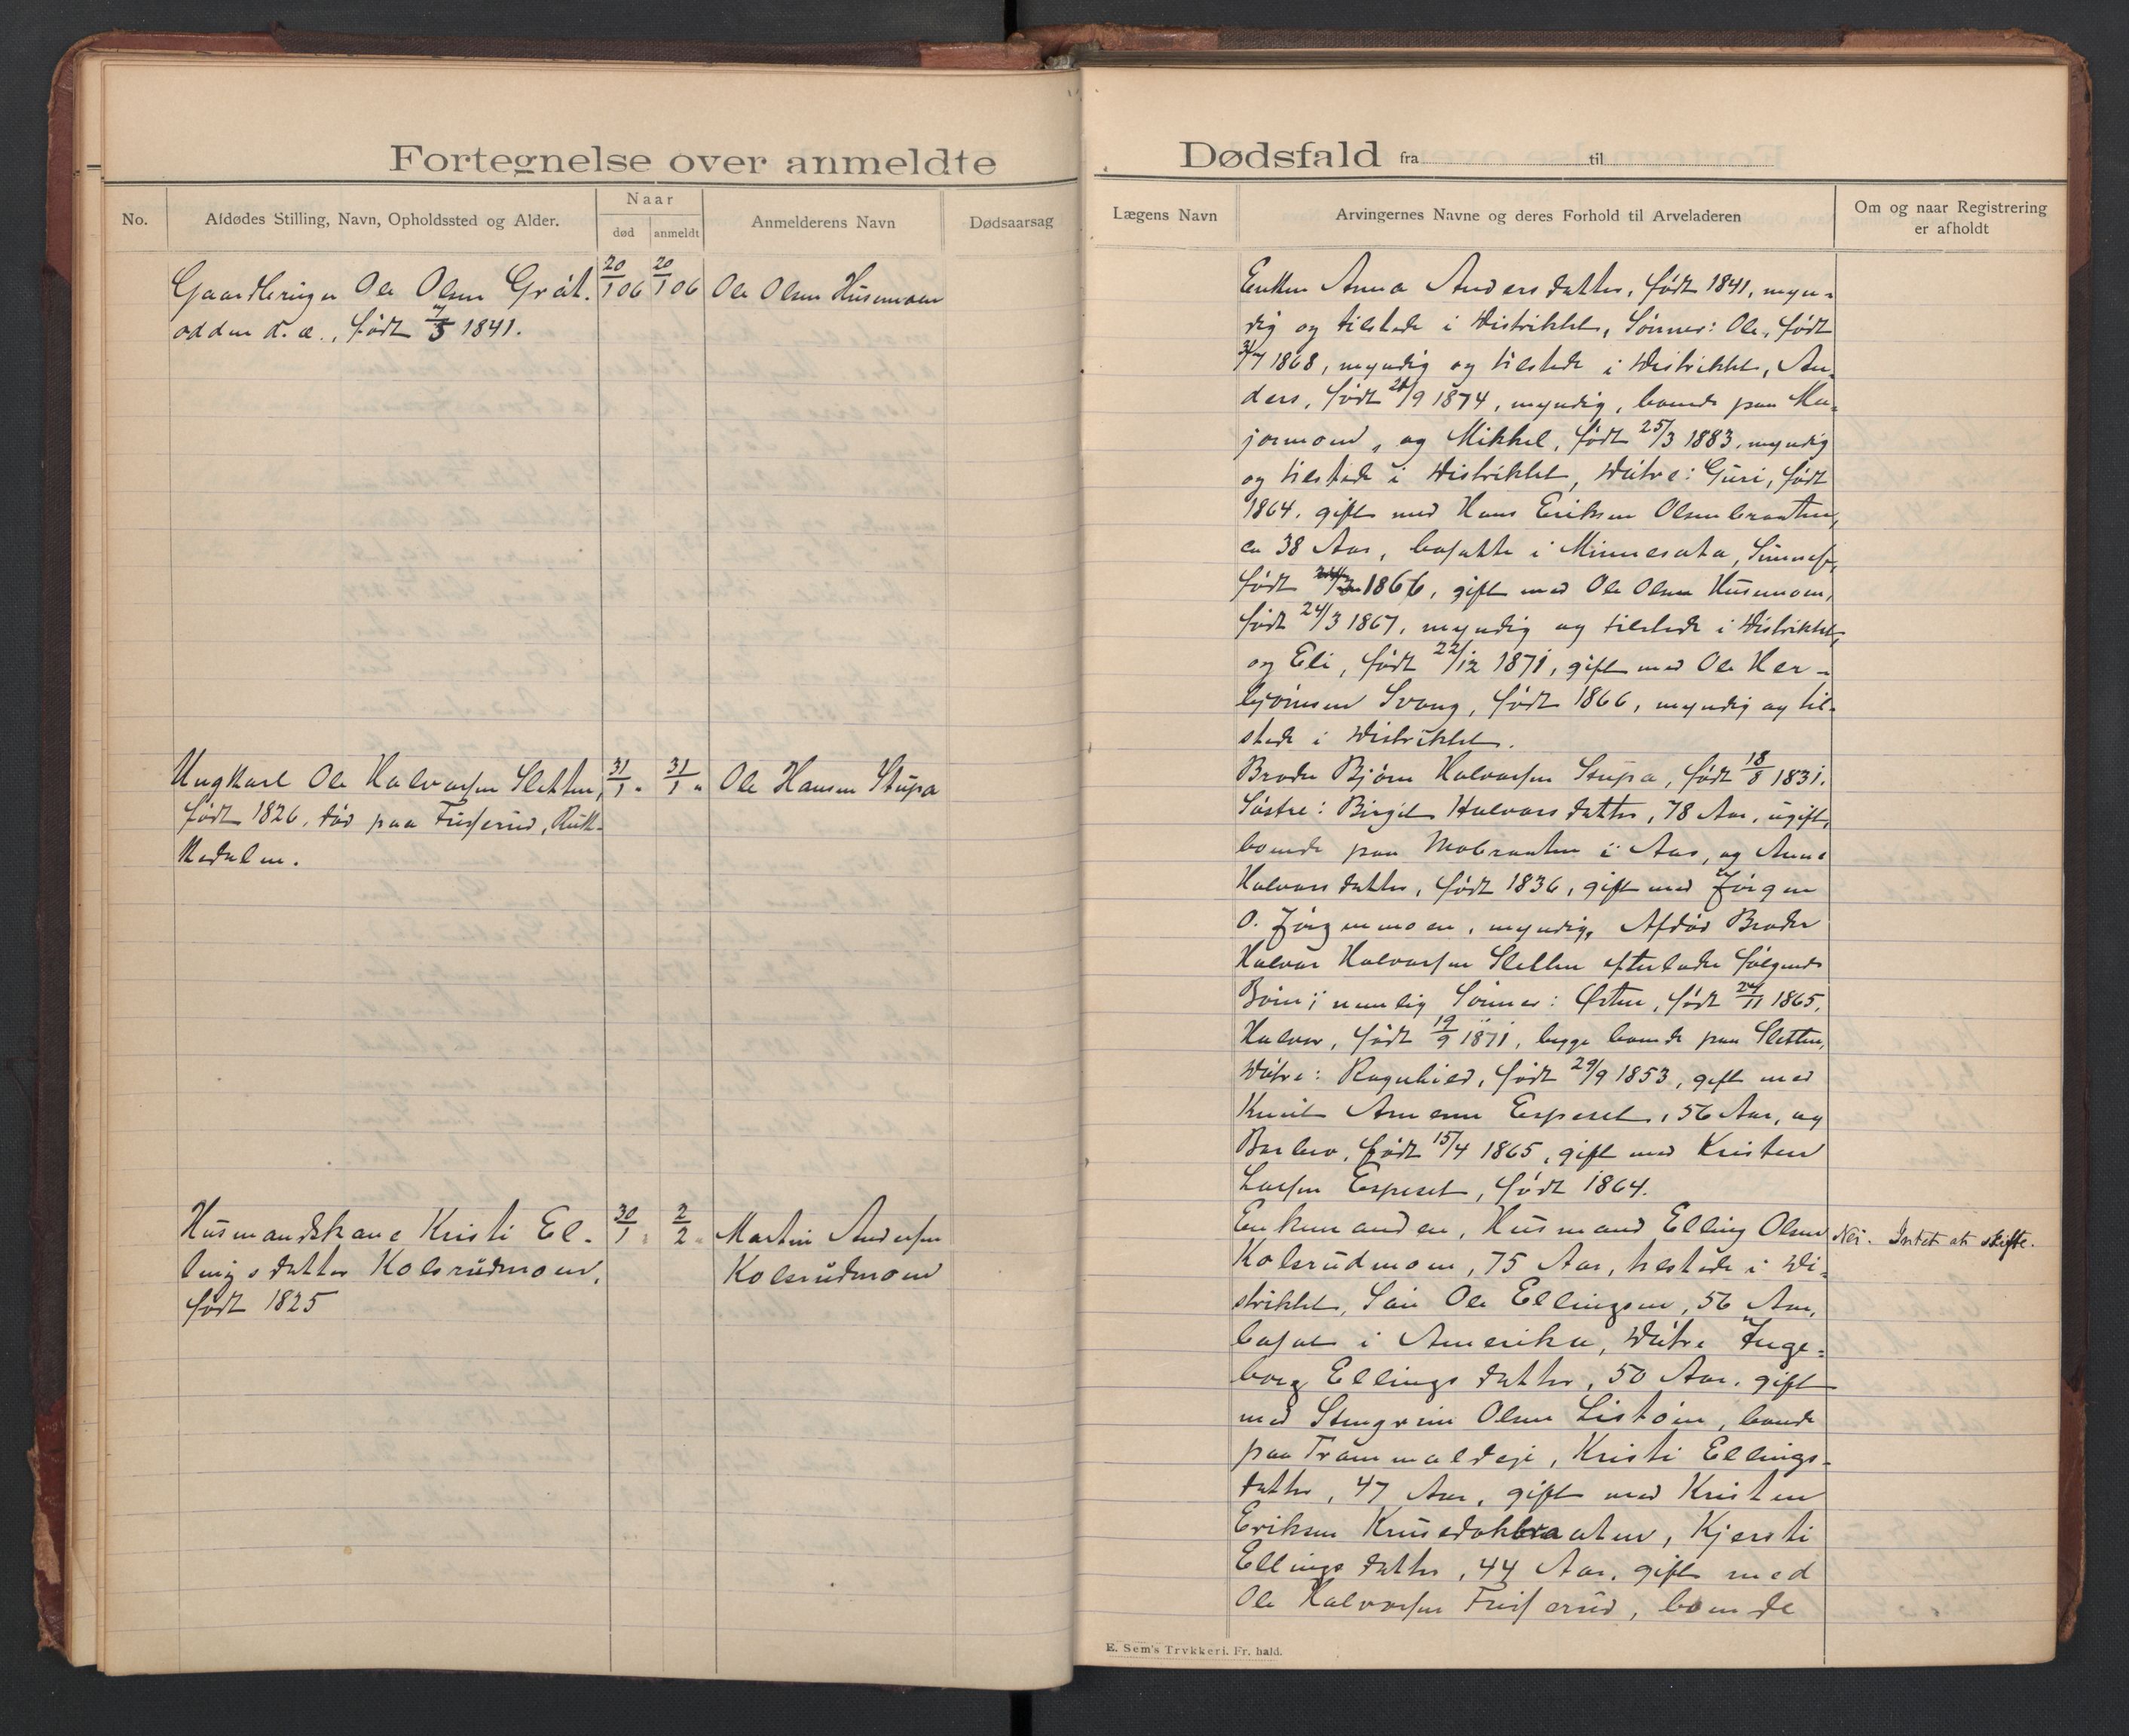 Fortegnelse over anmeldte
No.
Afdødes Stilling, Navn, Opholdssted og Alder.
Naar
død
anmeldt
Anmelderens Navn
Dødsaarsag
Ole Olsen Gråt-
20/1 06
20/1 06
Ole Olsen Husemoen
odden d.æ., født 7/5 1841.
Ungkarl Ole Halvorsen Sletten,
31/1 "
31/1 "
Ole Hansen Stupa
født 1826, død paa Trufserud,
Husmandskone Kristi El-
30/1 "
2/2 "
Martin Andersen
lingsdatter Kolsrudmoen,
Kolsrudmoen
født 1825
Dødsfald fra til
Lægens Navn
Arvingernes Navne og deres Forhold til Arveladeren
Om og naar Registrering
er afholdt
Enken Anna Andersdatter, født 1841, myn-
dig og tilstede i Distriktet, Sønner: Ole, født
31/7 1868, myndig og tilstede i Distriktet, An-
ders, født 9 1874, myndig, boende paa
og Mikkel, født 25/3 1883, myndig
og tilstede i Distriktet, Døtre: Guri, født
1864, gift med Hans Eriksen Olsenbraaten,
ca 38 Aar, bosatte i Minnesota,
født 1866, gift med Ole Olsen Husemoen,
født 24/3 1867, myndig og tilstede i Distriktet,
og Eli, født 22/12 1871, gift med Ole Her-
bjørnsen Svang, født 1866, myndig og til-
stede i Distriktet.
Broder Bjørn Halvorsen Stupa, født 18/8 1831.
Søstre: Birgit Halvorsdatter, 78 Aar, ugift,
boende paa Mobraaten i Aas, og Anne
Halvorsdatter, født 1836, gift med Jørgen
O. Jørgenmoen, myndig, Afdød Broder
Halvor Halvorsen Sletten efterlader følgende
Børn; nemlig Sønner: Østen, født 24/11 1865,
Halvor, født 19/9 1871, begge boende paa Sletten,
Døtre: Ragnhild, født 29/9 1853, gift med
Knut Arnesen Espeset, 56 Aar, og
Barbro, født 15/4 1865, gift med Kristen
Larsen Espeset, født 1864.
Enkemanden, Husmand Elling Olsen
Nei. Intet at skifte.
Kolsrudmoen, 75 Aar, tilstede i Di-
striktet, Søn Ole Ellingsen, 56 Aar,
bosat i Amerika, Døtre Inge-
borg Ellingsdatter, 50 Aar, gift
med Stengrim Olsen Liståen, boende
paa Trommaldeje, Kristi Ellings-
datter, 47 Aar, gift med Kristen
Eriksen Kjersti
Ellingsdatter, 44 Aar, gift med
Ole Halvorsen Trufserud, boende
E. Sem's Trykkeri. Fr. hald.